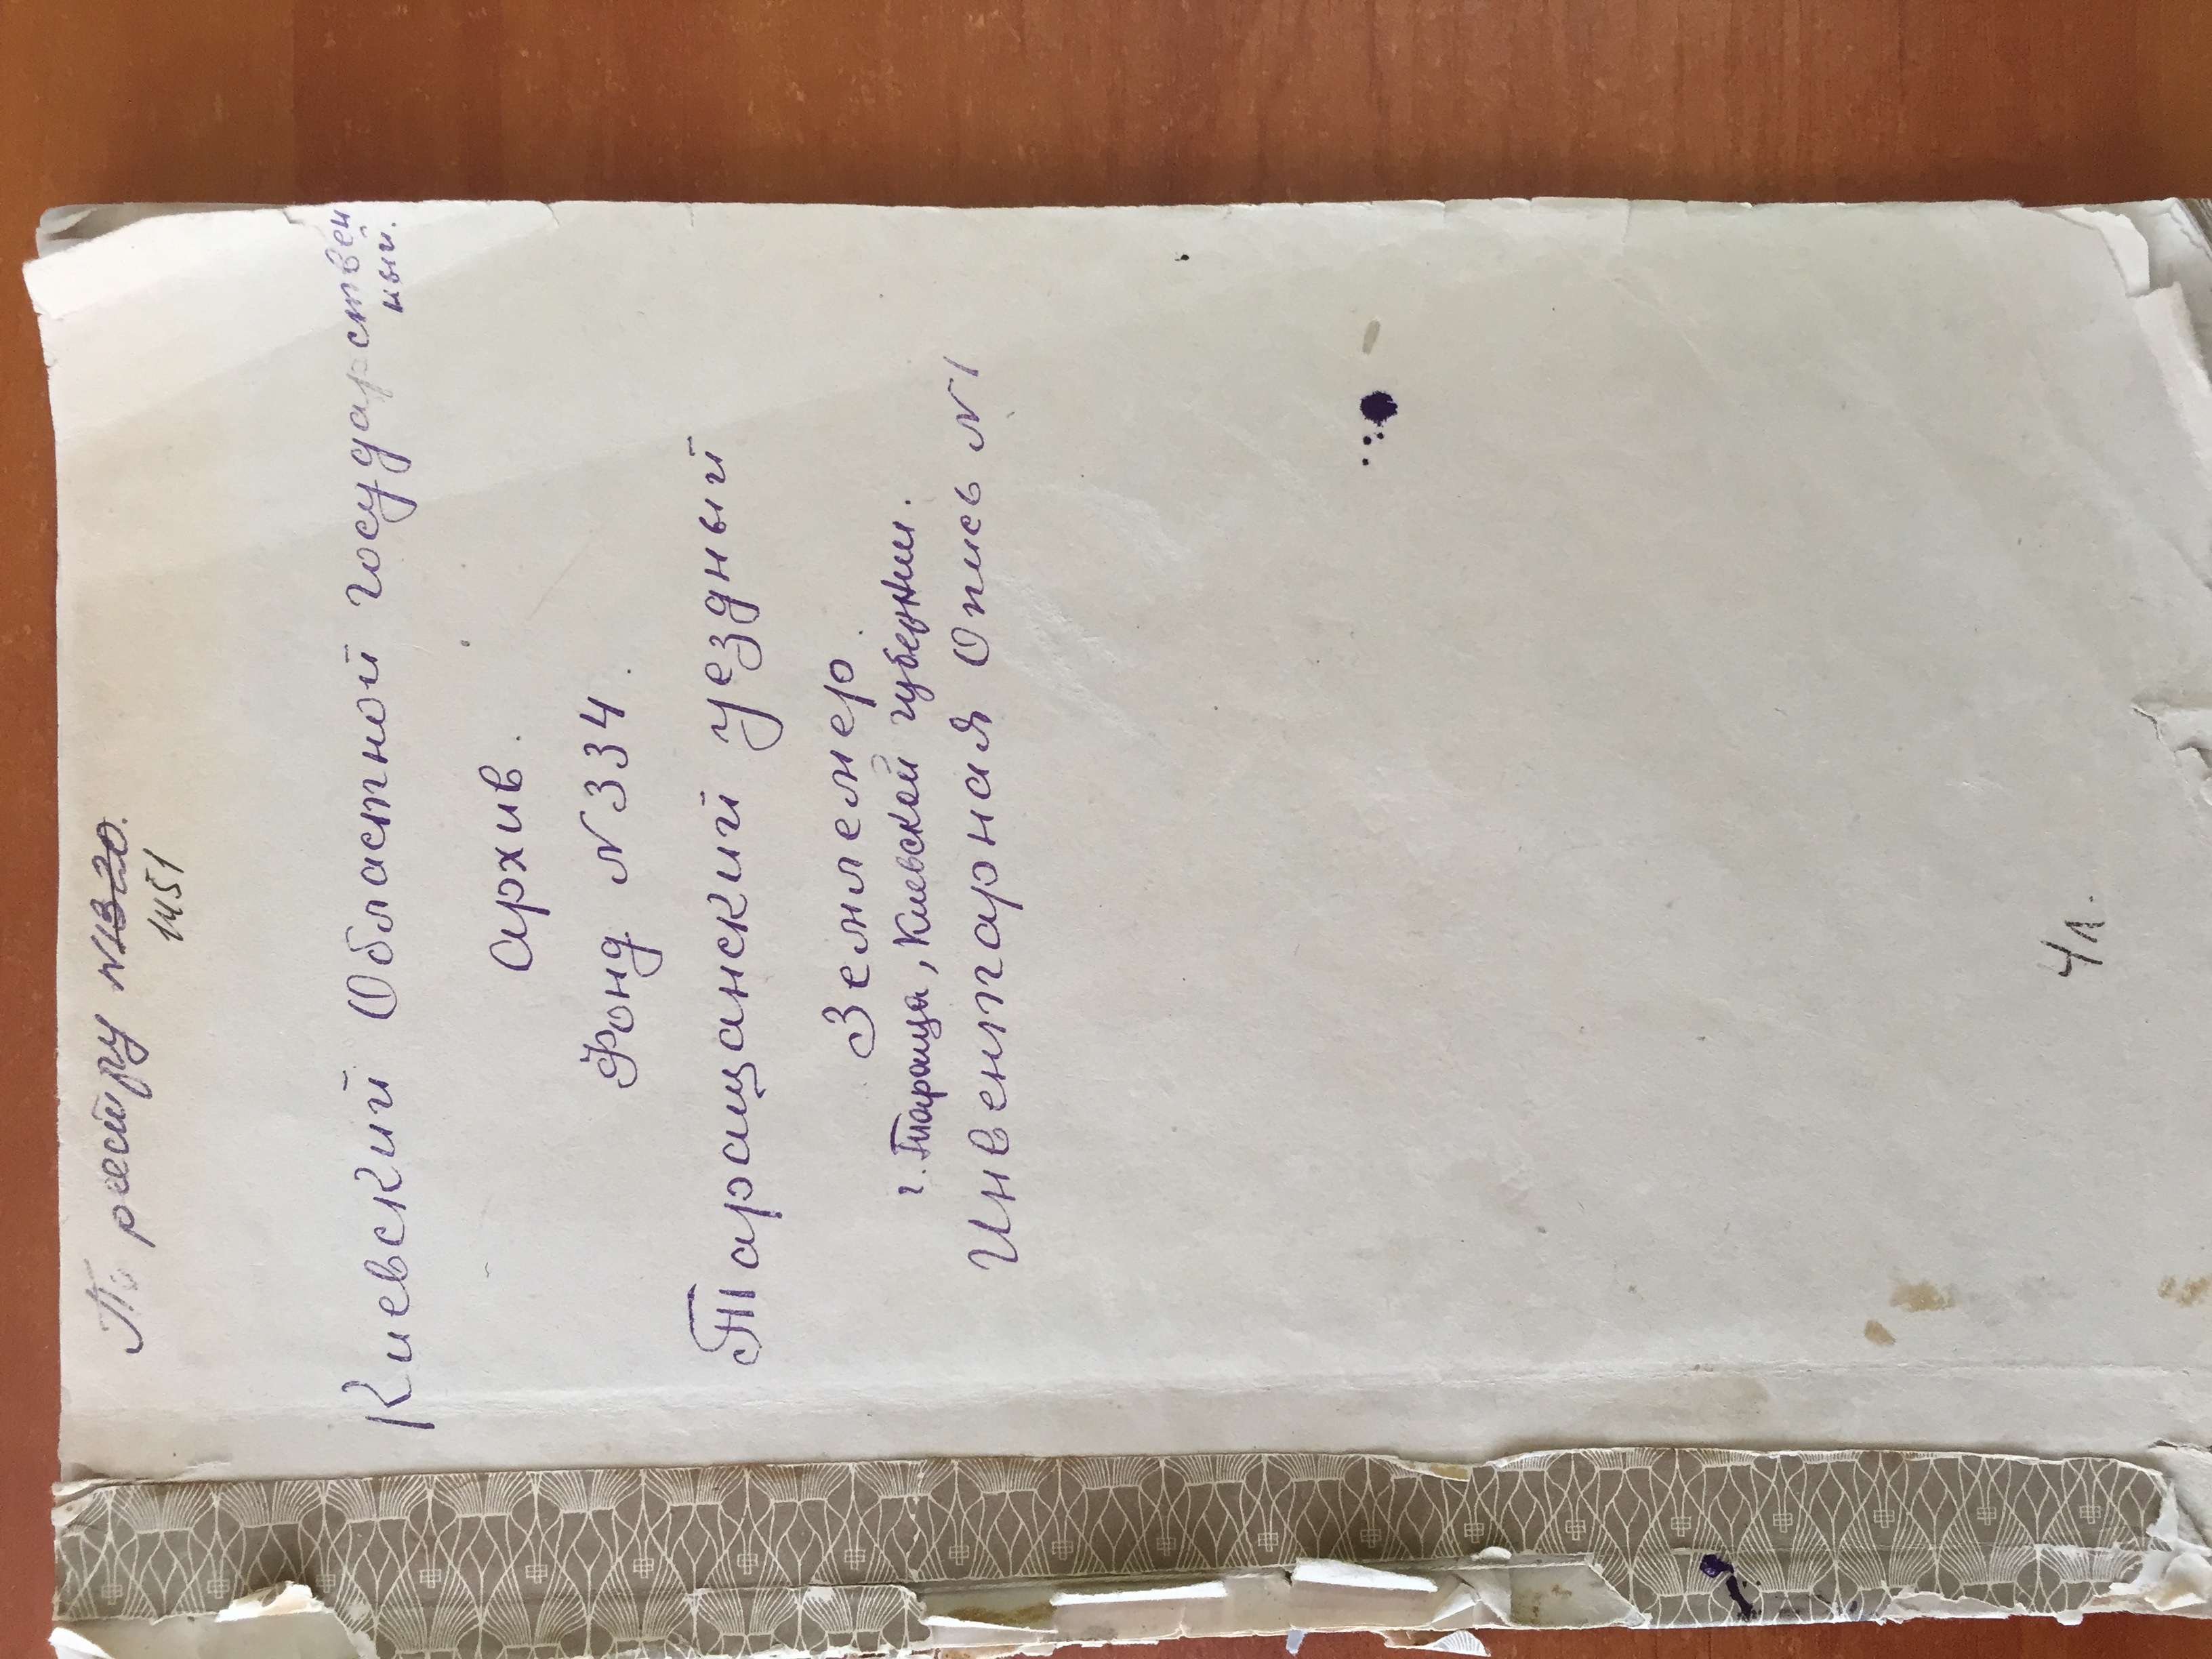 По реестру №1320.
1451
Киевский Областной государствен
ный.
Архив.
Фонд №334.
Таращанский уездный
Землемер.
г. Тараща, Киевской губернии.
Инвентарная Опись №1
4л.